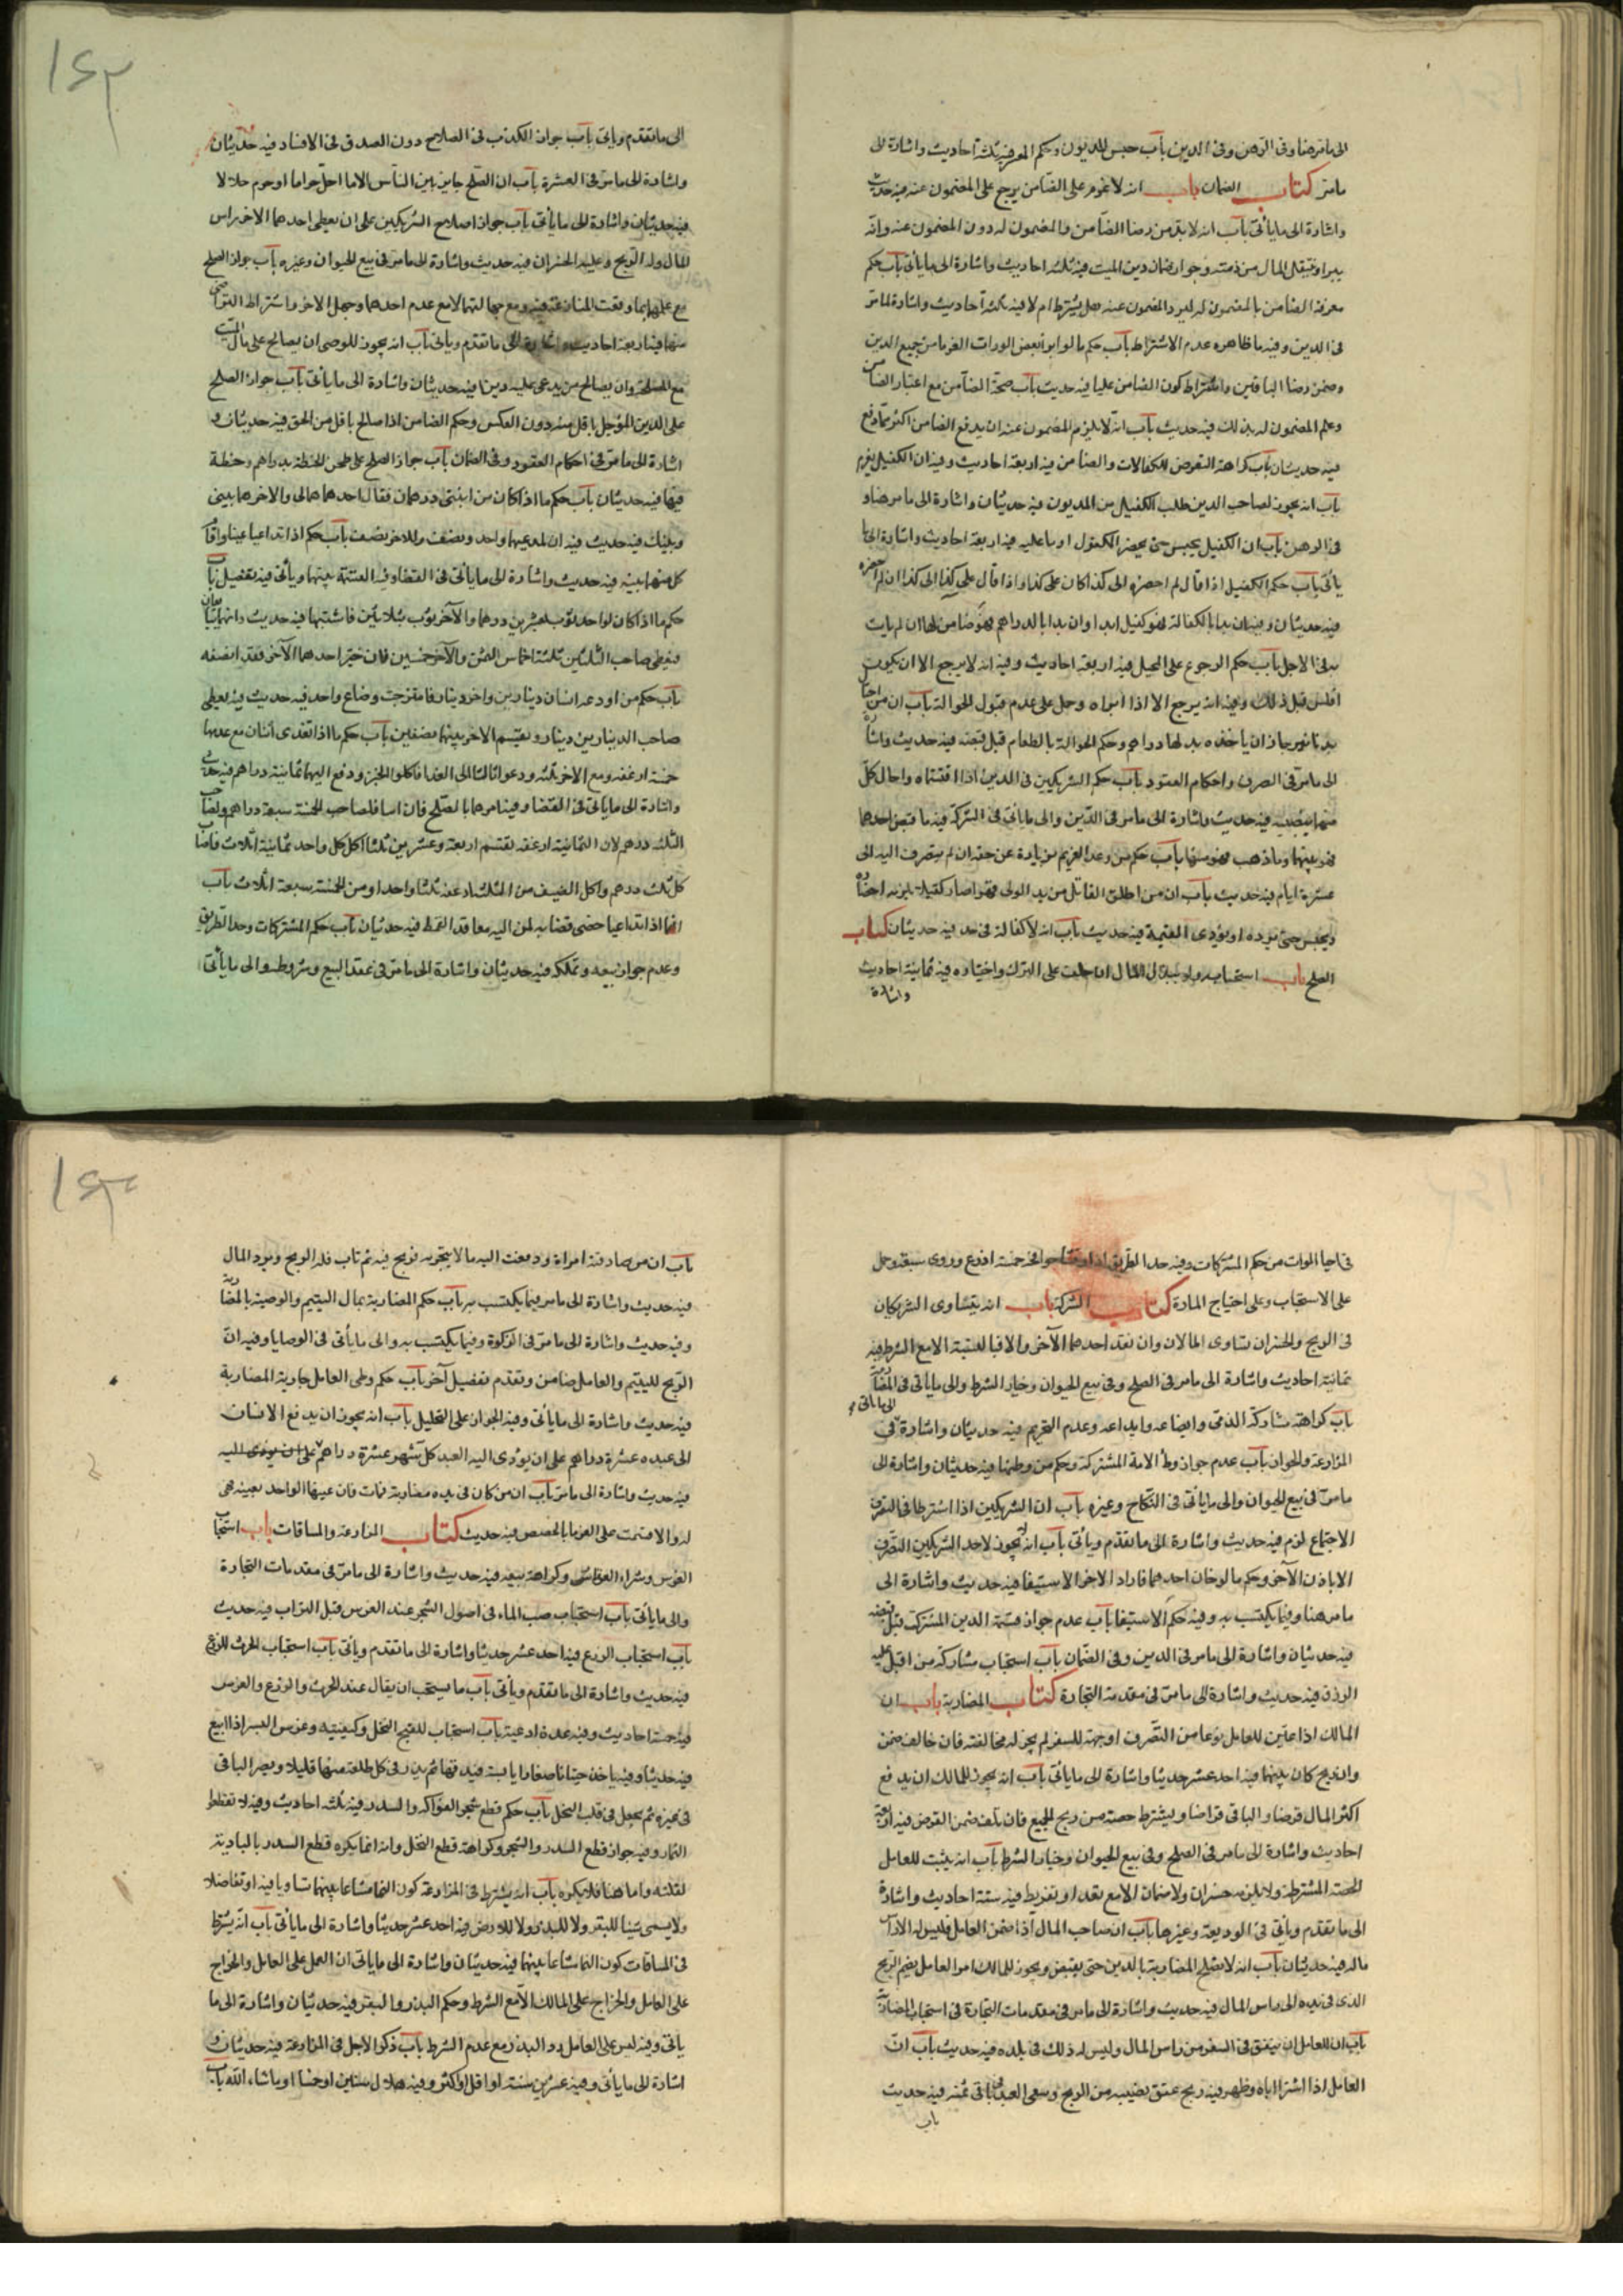 الى ما مر هنا وفى الرهن وفى الدين باب حبس المديون وحكم المعسر فيه ثلثة احاديث واشارة الى
ما مر كتاب الضمان باب انه لا غرم على الضامن يرجع على المضمون عنه فيه حديث
واشارة الى ما يأتى باب انه لا بد من رضا الضامن والمضمون له دون المضمون عنه وانه
يبرا وينتقل المال من ذمته وجواز ضمان دين الميت فيه ثلثه احاديث واشارة الى ما يأتى باب حكم
معرفة الضامن بالمضمون له والمضمون عنه هل يشترط ام لا فيه ثلثة احاديث واشارة لما مر
فى الدين وفيه ما ظاهره عدم الاشتراط باب حكم ما لو ابرأ بعض الوراث الغرما من جميع الدين
وضمن رضا الباقين واشتراط كون الضامن مليا فيه حديث باب صحة الضامن مع اعتبار الضامن
وعلم المضمون له بذلك فيه حديث باب انه لا يلزم المضمون عنه ان يدفع الضامن اكثر مما دفع
فيه حديثان باب كراهة التعرض للكفالات والضمان فيه اربعة احاديث وفيه ان الكفيل يغرم
باب انه يجوز لصاحب الدين طلب الكفيل من المديون فيه حديثان واشارة الى ما مر هنا و
فى الرهن باب ان الكفيل يحبس حتى يحضر المكفول او ما عليه فيه اربعة احاديث واشارة الى ما
يأتى باب حكم الكفيل اذا قال لم احضره الى كذا كان على كذا واذا قال على كذا الى كذا ان لم احضره
فيه حديثان وفيه ان بدا بالكفالة فهو كفيل ابدا وان بدا بالدراهم فهو ضامن لها ان لم يات
به فى الاجل باب حكم الرجوع على المحيل فيه اربعة احاديث وفيه انه لا يرجع الا ان يكون
افلس قبل ذلك وفيه انه يرجع الا اذا ابراه وحمل على عدم قبول الحوالة باب ان من احتال
بدنانير جاز ان ياخذ بدلها دراهم وحكم الحوالة بالطعام قبل قبضه فيه حديث واشارة
الى ما مر فى الصرف واحكام العقود باب حكم الشريكين فى الدين اذا اقتسماه واحال كل
منهما بنصيبه فيه حديث واشارة الى ما مر فى الدين والى ما ياتى فى الشركة فيه ما قبض احدهما
فهو بينهما وما ذهب فهو منهما باب حكم من وعد الغريم بزيادة عن حقه ان لم يتصرف اليه الى
عشرة ايام فيه حديث باب ان من اطلق القاتل من يد الولى قهرا صار كفيلا يلزمه احضاره
ويحبس حتى يرده او يؤدى القيمة فيه حديث باب انه لا كفالة فى حد فيه حديثان كتاب
الصلح باب استحبابه ولو ببذل المال ان حلف على الترك واختياره فيه ثمانية احاديث
واشارة
الى ما تقدم وياتى باب جواز الكذب فى الصلاح دون الصدق فى الافساد فيه حديثان
واشارة الى ما مر فى العشرة باب ان الصلح جايز بين الناس الا ما احل حراما او حرم حلالا
فيه حديثان واشارة الى ما يأتى باب جواز اصلاح الشريكين على ان يعطى احدهما الاخر راس
المال وله الربح وعليه الخسران فيه حديث واشارة الى ما مر فى بيع الحيوان وغيره باب جواز الصلح
مع علمهما بما وقعت المنازعة فيه ومع جهالتهما لا مع علم احدهما وجهل الاخر واشتراط التراضى
منهما فيه اربعة احاديث واشارة الى ما تقدم ويأتى باب انه يجوز للوصى ان يصالح على مال الميت
مع المصلحة وان يصالح من يدعى عليه دينا فيه حديثان واشارة الى ما يأتى باب جواز الصلح
على الدين المؤجل باقل منه دون العكس وحكم الضامن اذا صالح باقل من الحق فيه حديثان و
اشارة الى ما مر فى احكام العقود وفى الضمان باب جواز الصلح على طحن الحنطة بدراهم وحنطة
فيها فيه حديثان باب حكم ما اذا كان بين اثنين درهمان فقال احدهما هما لى والاخر هما بينى
وبينك فيه حديث فيه ان لمدعيهما واحد ونصف وللاخر نصف باب حكم اذا تداعيا عينا واقام
كل منهما بينة فيه حديث واشارة الى ما يأتى فى القضا وفيه القسمة بينهما ويأتى فيه تفصيل باب
حكم ما اذا كان لواحد ثوب بعشرين درهما والآخر ثوب بثلاثين فاشتبها فيه حديث وانهما يباعان
فيعطى صاحب الثلثين ثلثة اخماس الثمن والآخر خمسين فان خير احدهما الآخر فقد انصفه
باب حكم من اودعه انسان دينارين واخر دينارا فامتزجت وضاع واحد فيه حديث فيه يعطى
صاحب الدينارين دينارا ويقتسم الاخر بينهما نصفين باب حكم ما اذا تغدى اثنان مع احدهما
خمسة ارغفة ومع الاخر ثلثة ودعوا ثالثا الى الغدا فاكلوا الخبز ودفع اليهما ثمانية دراهم فيه حديث
واشارة الى ما يأتى فى القضا وفيه امرهما بالصلح فان ابيا فلصاحب الخمسة سبعة دراهم ولصاحب
الثلثة درهم لان الثمانية ارغفة يقتسم اربعة وعشرين ثلثا اكل كل واحد ثمانية اثلاث فاصاب
كل ثلث درهم واكل الضيف من الثلثة ارغفة ثلثا واحدا ومن الخمسة سبعة اثلاث باب
انهما اذا تداعيا خصا قضى به لمن اليه معاقد القمط فيه حديثان باب حكم المشتركات وحد الطريق
وعدم جواز بيعه وتملكه فيه حديثان واشارة الى ما مر فى عقد البيع وشروطه والى ما يأتى
فى احيا الموات من حكم المشتركات وفيه حد الطريق اذا خمسة اذرع وروى سبعة وحمل
على الاستحباب وعلى احتياج المارة كتاب الشركة باب انه يتساوى الشريكان
فى الربح والخسران تساوى المالان وان نقد احدهما الآخر والا فبالنسبة الا مع الشرط فيه
ثمانية احاديث واشارة الى ما مر فى الصلح وفى بيع الحيوان وخيار الشرط والى ما ياتى فى المضاربة
باب كراهة مشاركة الذمى وابضاعه وايداعه وعدم التحريم فيه حديثان واشارة الى ما يأتى فى
المزارعة والجواز باب عدم جواز وطأ الامة المشتركة وحكم من وطئها فيه حديثان واشارة الى
ما مر فى بيع الحيوان والى ما يأتى فى النكاح وغيره باب ان الشريكين اذا اشترطا فى التصرف
الاجتماع لزم فيه حديث واشارة الى ما تقدم ويأتى باب انه لا يجوز لاحد الشريكين التصرف
الا باذن الآخر وحكم ما لو خان احدهما فاراد الاخر الاستيفا فيه حديث واشارة الى
ما مر هنا وفيما يكتسب به وفيه حكم الاستيفا باب عدم جواز قسمة الدين المشترك قبل قبضه
فيه حديثان واشارة الى ما مر فى الدين وفى الضمان باب استحباب مشاركة من اقبل عليه
الرزق فيه حديث واشارة الى ما مر فى مقدمة التجارة كتاب المضاربة باب ان
المالك اذا عين للعامل نوعا من التصرف او جهة للسفر لم يجز له مخالفته فان خالف ضمن
وان ربح كان بينهما فيه احد عشر حديثا واشارة الى ما يأتى باب انه يجوز للمالك ان يدفع
اكثر المال قرضا والباقى قراضا ويشترط حصة من ربح الجميع فان تلف ضمن القرض فيه اربعة
احاديث واشارة الى ما مر فى الصلح وفى بيع الحيوان وخيار الشرط باب انه يثبت للعامل
الحصة المشترطة ولا يلزمه خسران ولا ضمان الا مع تعد او تفريط فيه ستة احاديث واشارة
الى ما تقدم ويأتى فى الوديعة وغيرها باب ان صاحب المال اذا ضمن العامل فليس له الا راس
ماله فيه حديثان باب انه لا يصلح المضاربة بالدين حتى يقبض ويجوز للمالك امر العامل بضم الربح
الذى فى يده الى راس المال فيه حديث واشارة الى ما مر فى مقدمات التجارة فى استحباب المضاربة
باب ان للعامل ان ينفق فى السفر من راس المال وليس له ذلك فى بلده فيه حديث باب ان
العامل اذا اشترا اباه وظهر فيه ربح عتق نصيبه من الربح وسعى العبد فى باقى ثمنه فيه حديث
باب
باب ان من صادقته امراة ودفعت اليه مالا يتجر به فربح فيه ثم تاب فله الربح ويرد المال
فيه حديث واشارة الى ما مر فيما يكتسب به باب حكم المضاربة بمال اليتيم والوصية بالمضاربة
وفيه حديث واشارة الى ما مر فى الزكوة وفيما يكتسب به والى ما يأتى فى الوصايا وفيه ان
الربح لليتيم والعامل ضامن وتقدم تفصيل آخر باب حكم وطى العامل جارية المضاربة
فيه حديث واشارة الى ما يأتى وفيه الجواز على التحليل باب انه يجوز ان يدفع الانسان
الى عبده عشرة دراهم على ان يؤدى اليه العبد كل شهر عشرة دراهم
فيه حديث واشارة الى ما مر باب ان من كان فى يده مضاربة فمات فان عينها لواحد بعينه فهى
له والا قسمت على الغرما بالحصص فيه حديث كتاب المزارعة والمساقات باب استحباب
الغرس وشراء العقار وكراهة بيعه فيه حديث واشارة الى ما مر فى مقدمات التجارة
والى ما يأتى باب استحباب صب الماء فى اصول الشجر عند الغرس قبل التراب فيه حديث
باب استحباب الزرع فيه احد عشر حديثا واشارة الى ما تقدم ويأتى باب استحباب الحرث للزرع
فيه حديث واشارة الى ما تقدم ويأتى باب ما يستحب ان يقال عند الحرث والزرع والغرس
فيه خمسة احاديث وفيه عدة ادعية باب استحباب تلقيح النخل وكيفيته وغرس البسر اذا اينع
فيه حديثا وفيه ياخذ حيتانا صغارا يابسة فيدقها ثم يذر فى كل طلعة منها قليلا ويصر الباقى
فى صرة ثم يجعل فى قلب النخل باب حكم قطع شجر الفواكه والسدر فيه ثلثه احاديث وفيه لا تقطعوا
الثمار وفيه جواز قطع السدر والشجر وكراهة قطع النخل وانه انما يكره قطع السدر بالبادية
لقلته واما هنا فلا يكره باب انه يشترط فى المزارعة كون النما مشاعا بينهما تساويا فيه او تفاضلا
ولا يسمى شيئا للبقر ولا للبذر ولا للارض فيه احد عشر حديثا واشارة الى ما يأتى باب انه يشترط
فى المساقات كون النما مشاعا بينهما فيه حديثان واشارة الى ما ياتى ان العمل على العامل والخراج
على العامل والخراج على المالك الا مع الشرط وحكم البذر والبقر فيه حديثان واشارة الى ما
ياتى وفيه ليس على العامل رد البذر مع عدم الشرط باب ذكر الاجل فى المزارعة فيه حديثان و
اشارة الى ما يأتى وفيه عشرين سنة او اقل او اكثر وفيه ثلاث سنين او خمسا او ما شاء الله باب